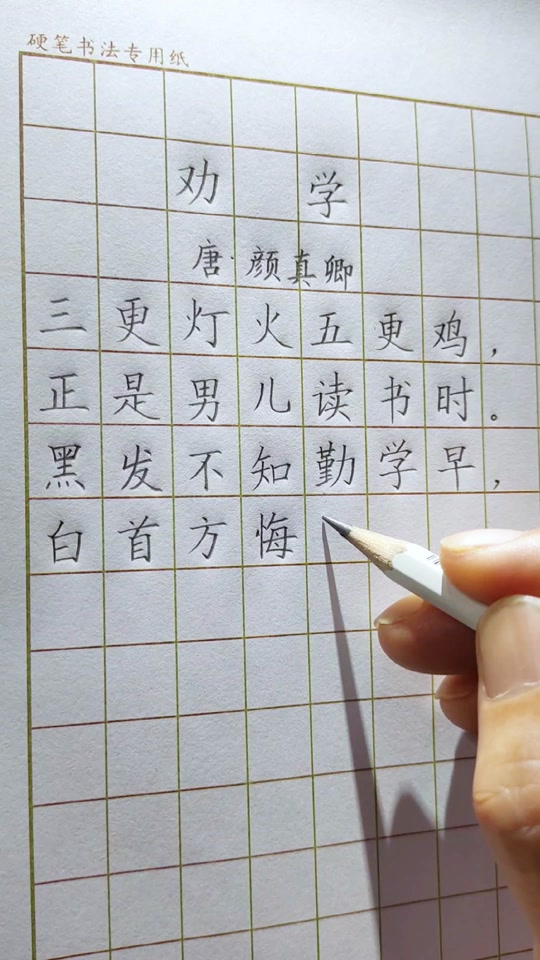 硬笔书法专用纸
劝学
唐·颜真卿
三更灯火五更鸡，
正是男儿读书时。
黑发不知勤学早，
白首方悔